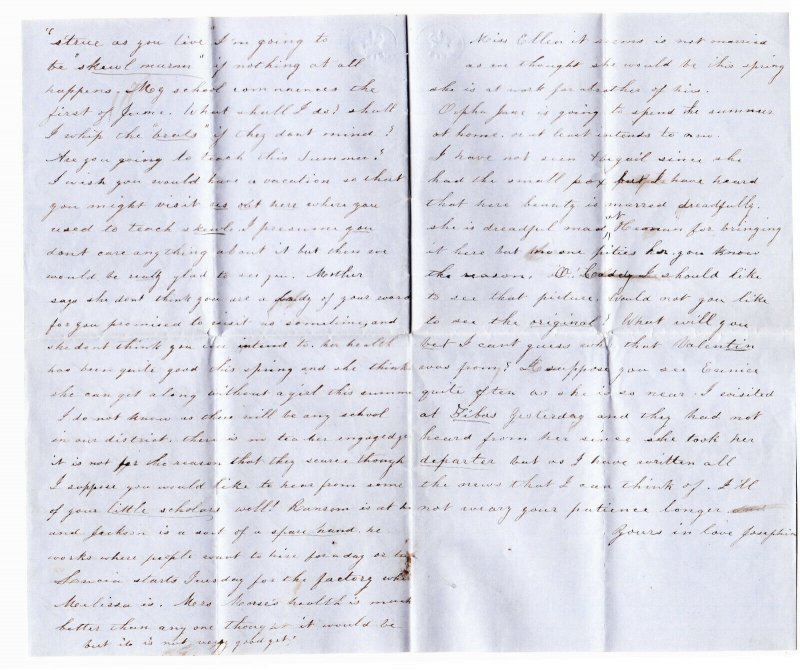 "strue as you live I'm going to
be "skewl marm" if nothing at all
happens. My school commences the
first of June. What shall I do? shall
I whip the "brats" if they dont mind?
Are you going to teach this Summer?
I wish you would have a vacation so that
you might visit us out here where you
used to teach skewl. I presume you
dont care anything about it but then we
would be really glad to see you. Mother
says she dont think you are a lady of your word
for you promised to visit us sometime, and
she dont think you intend to. her health
has been quite good this spring and she thinks
she can get along without a girl this summe
I do not know as there will be any school
in our district. there is no teacher engaged ye
it is not for the reason that they scarce though
I suppose you would like to hear from some
of your little scholars well! Ransom is at
and Jackson is a sort of a spare hand. he
works where people want to hire for a day or
starts Tuesday for the factory whe
Melissa is. Mrs Morse's health is much
better than any one thought it would be
but its is not very good yet!
Miss Ellen it seems is not married
as we thought she would be this spring
she is at work for a brother of his.
Orpha Jane is going to spend the summer
at home. or at least intends to now.
I have not seen since she
had the small pox but I have heard
that here beauty is marred dreadfully.
she is dreadful mad at Heman for bringing
it here but no one pities her, you know
the reason. O! I should like
to see that picture, Would not you like
to see the original? What will you
bet I cant guess who that Valentin
was from? I suppose you see Eunice
quite often as she is so near. I visited
at Yesterday and they had not
heard from her since she took her
departer but as I have written all
the news that I can think of. I'll
not weary your patience longer
Yours in love Josephin